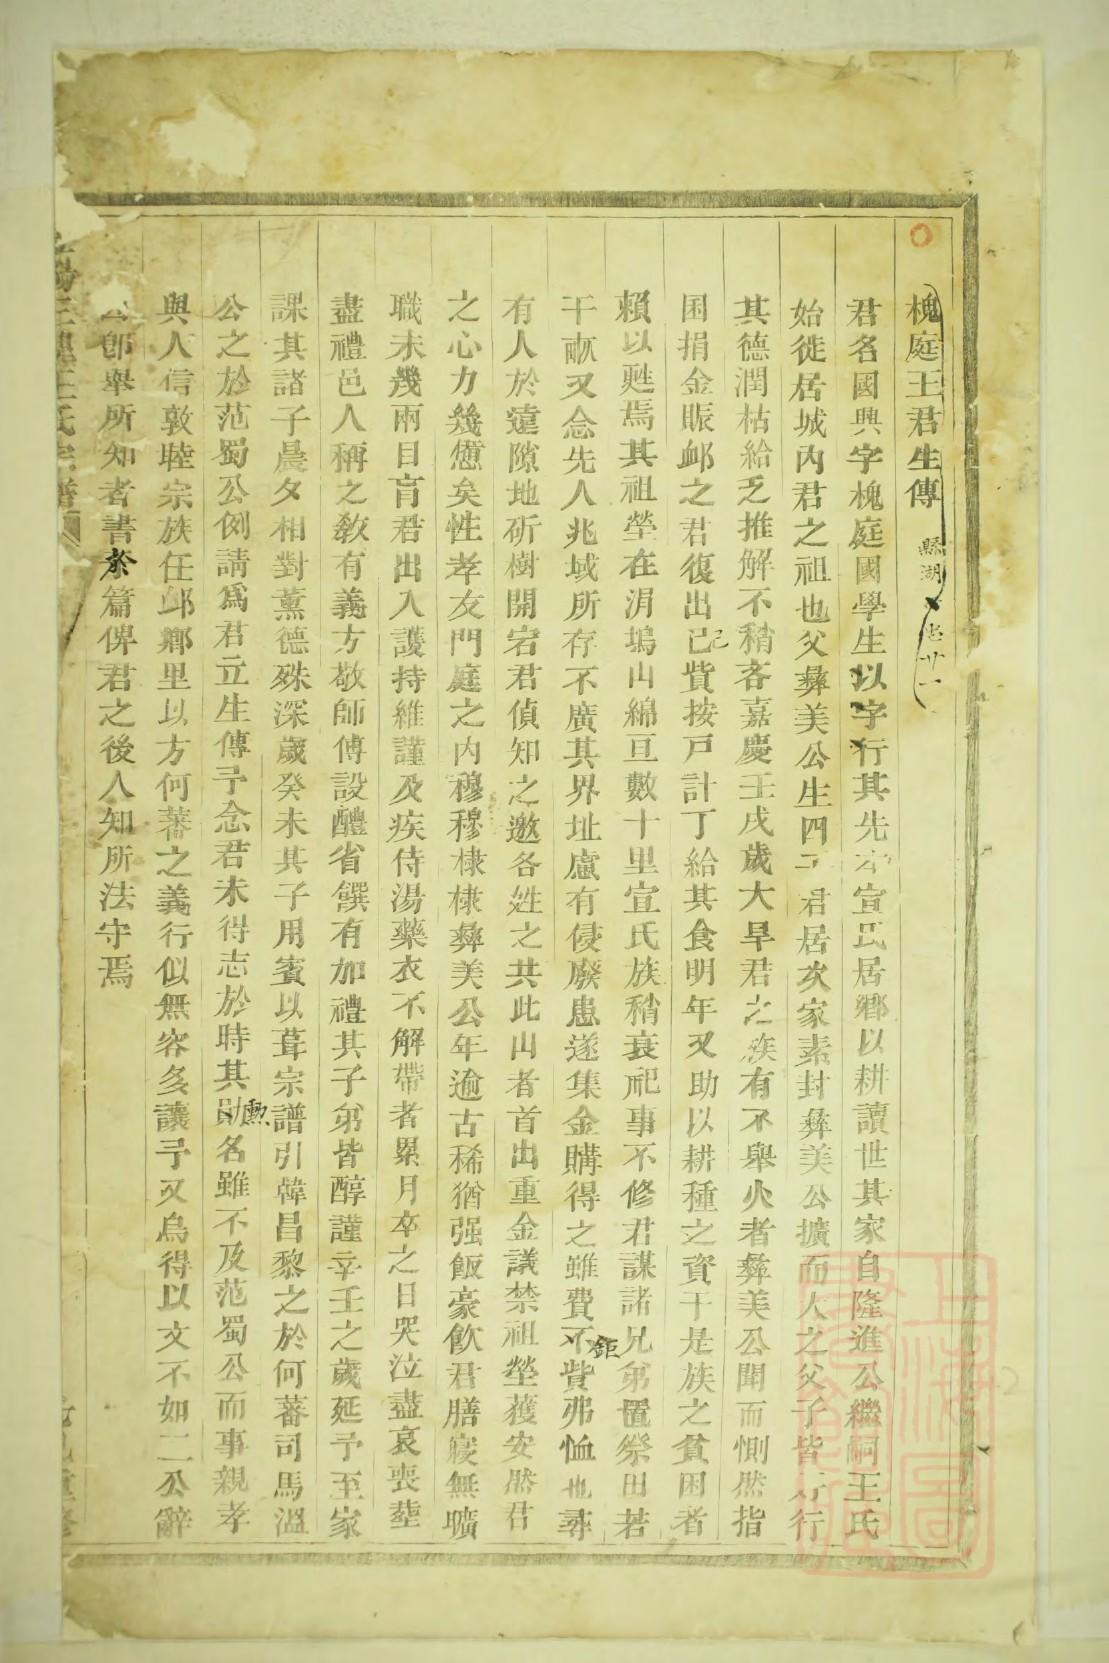 槐庭王君生傳
縣湖
君名國興字槐庭國學生以字行其先本宣氏居鄉以耕讀世其家自隆進公繼嗣王氏
始徙居城內君之祖也父彝美公生四子君居次家素封彝美公擴而大之父子皆行
其德潤枯給乏推解不稍吝嘉慶壬戌歲大旱君之族有不舉火者彝美公聞而惻然指
囷捐金賑卹之君復出已貲按戶計丁給其食明年又助以耕種之資于是族之貧困者
己
賴以甦焉其祖塋在涓塢山綿亘數十里宣氏族稍衰祀事不修君謀諸兄弟置祭田若
干畝又念先人兆域所存不廣其界址慮有侵廢患遂集金購得之雖費不貲弗恤也尋
鉅
有人於蘧隙地斫樹開宕君偵知之邀各姓之共此山者首出重金議禁祖塋獲安然君
之心力幾憊矣性孝友門庭之內穆穆棣棣彝美公年逾古稀猶强飯豪飲君膳寢無曠
職未幾兩目肓君出入護持維謹及疾侍湯藥衣不解帶者累月卒之日哭泣盡哀喪塟
盡禮邑人稱之敎有義方敬師傅設醴省饌有加禮其子弟皆醇謹辛壬之歲延予至家
課其諸子晨夕相對薰德殊深歲癸未其子用賓以葺宗譜引韓昌黎之於何蕃司馬溫
公之於范蜀公例請爲君立生傳予念君未得志於時其勛名雖不及范蜀公而事親孝
勳
與人信敦睦宗族任卹鄉里以方何蕃之義行似無容多讓予又烏得以文不如二公辭
郎舉所知者書於篇俾君之後人知所法守焉
王氏宗譜
重修
上海圖書館藏